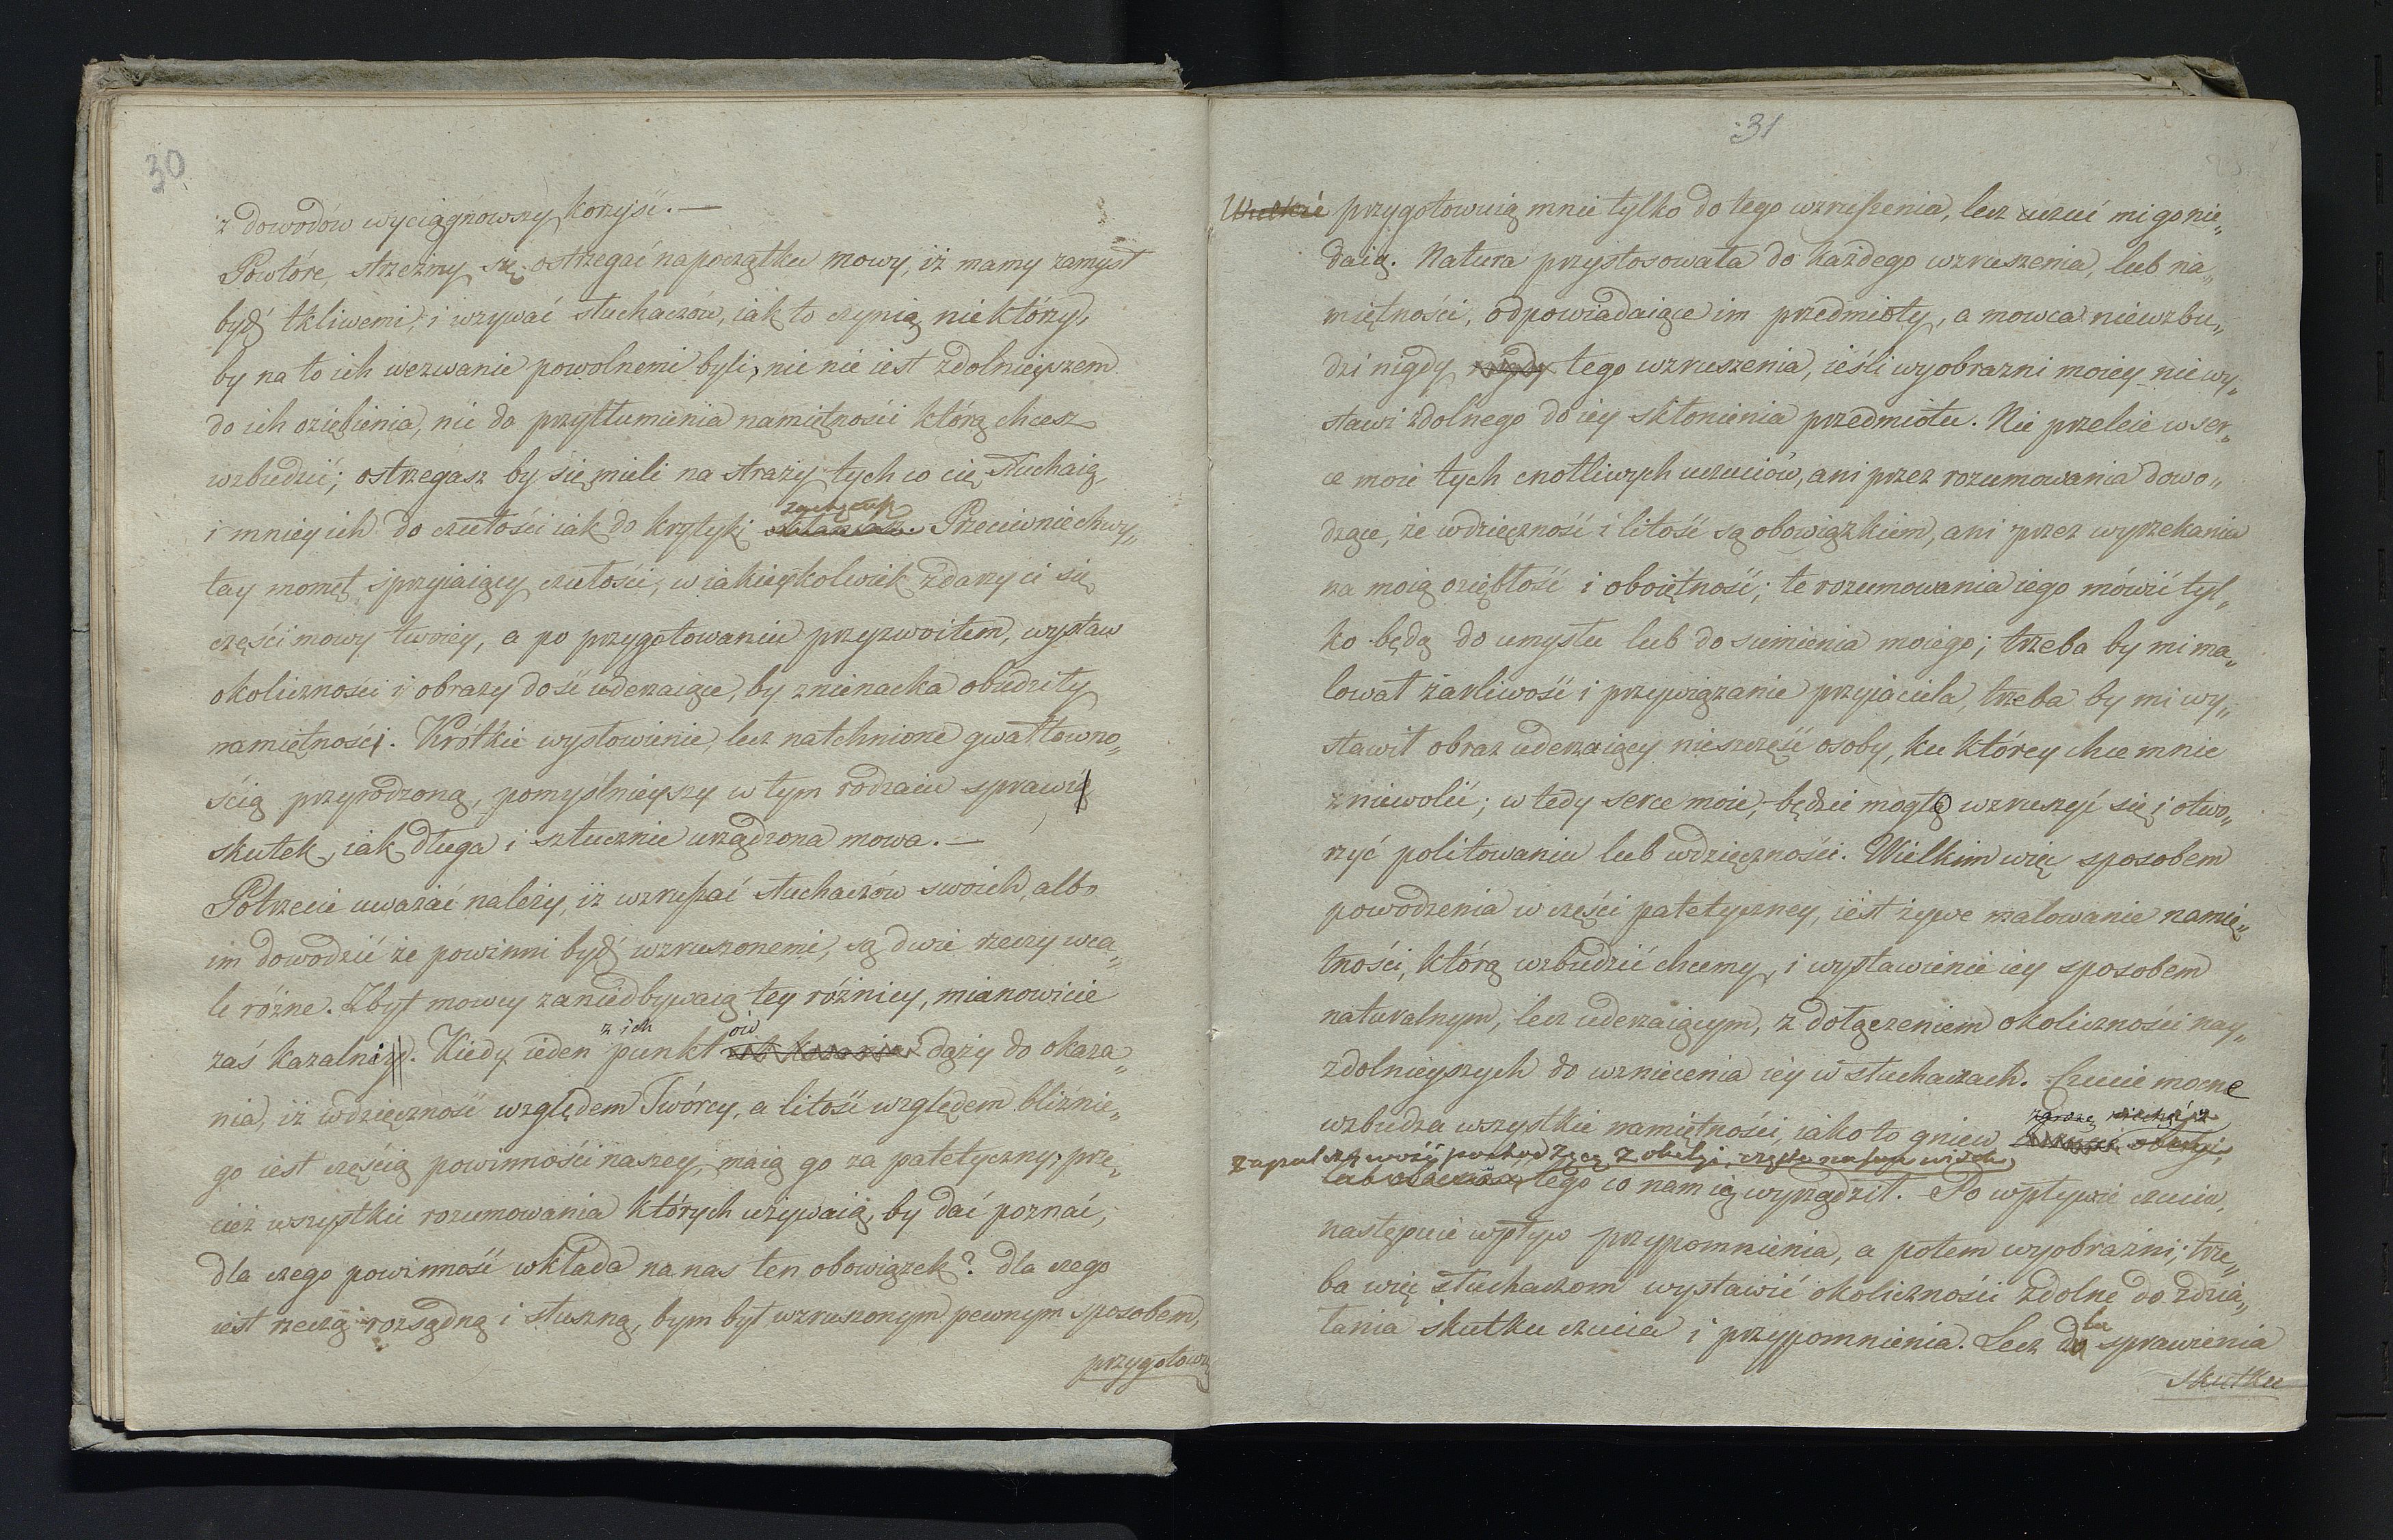 30
z dowodów wyciągnąwszy korzyść. —
Powtóre, strzeżmy się ostrzegać na początku mowy, iż mamy zamysł
bydź tkliwemi, i wzywać słuchaczów, iak to czynią niektórzy,
by na to ich wezwanie powolnemi byli, nic nie iest zdolnieyszem
do ich oziębienia, nic do przytłumienia namiętności którą chcesz
wzbudzić; ostrzegasz by się mieli na straży tych co cię słuchaią,
i mniey ich do czułości iak do krytyki Przeciwnie chwy„
tay momęt sprzyiaiący czułości, w iakieykolwiek zdarzy ci się
części mowy twoiey, a po przygotowaniu przyzwoitem, wystaw
okoliczności i obrazy dość uderzaiące, by znienacka obudziły
namiętności. Krótkie wysłowienie, lecz natchnione gwałtowno„
ścią przyrodzoną, pomyślnieyszy w tym rodzaiu sprawi
skutek, iak długa i sztucznie urządzona mowa. —
Potrzecie uważać należy, iż wzruszać słuchaczów swoich, albo
im dowodzić że powinni bydź wzruszonemi, są dwie rzeczy wca„
le różne. Zbyt mowcy zaniedbywaią tey różnicy, mianowicie
z ich ów
zaś kazalniczy. Kiedy ieden punkt dąży do okaza„
nia, iż wdzięczność względem Twórcy, a litość względem bliźnie„
go iest częścią powinności naszey, maią go za patetyczny; prze„
cież wszystkie rozumowania których używaią, by dać poznać,
dla czego powinność wkłada na nas ten obowiązek? dla czego
iest rzeczą rozsądną i słuszną, bym był wzruszonym pewnym sposobem,
przygotowu„
31
przygotowuią mnie tylko do tego wzruszenia, lecz uczuć mi go nie„
daią. Natura przystosowała do każdego wzruszenia, lub na„
miętności, odpowiadaiące im przedmioty, a mowca niewzbu„
dzi nigdy nigdy tego wzruszenia, ieśli wyobrazni moiey nie wy„
stawi zdolnego do iey skłonienia przedmiotu. Nie przeleie w ser„
ce moie tych cnotliwych uczuciów, ani przez rozumowania dowo„
dzące, że wdzięczność i litość są obowiązkiem, ani przez wyrzekania
na moią oziębłość i oboiętność; te rozumowania iego mówić tyl„
ko będą do umysłu lub do sumienia moiego; trzeba by mi ma„
lował żarliwość i przywiązanie przyiaciela, trzeba by mi wy„
stawił obraz uderzaiący nieszczęść osoby, ku którey chce mnie
zniewolić; w tedy serce moie, będzie mogło wzruszyć się i otwo„
rzyć politowaniu lub wdzięczności. Wielkim więc sposobem
powodzenia w części patetyczney, iest żywe malowanie namię„
tności, którą wzbudzić chcemy, i wystawienie iey sposobem
naturalnym, lecz uderzaiącym, z dołączeniem okoliczności nay„
zdolnieyszych do wzniecenia iey w słuchaczach. Czucie mocne
wzbudza wszystkie namiętności, iako to gniew obelgi,
zapalczywość pochodzącą z obelgi,
lub tego co nam ią wyrządził. Po wpływie czucia,
następuie wpływ przypomnienia, a potem wyobrazni; trze„
ba więc słuchaczom wystawić okoliczności zdolne do zdzia„
łania skutku czucia i przypomnienia. Lecz dla sprawienia
skutku